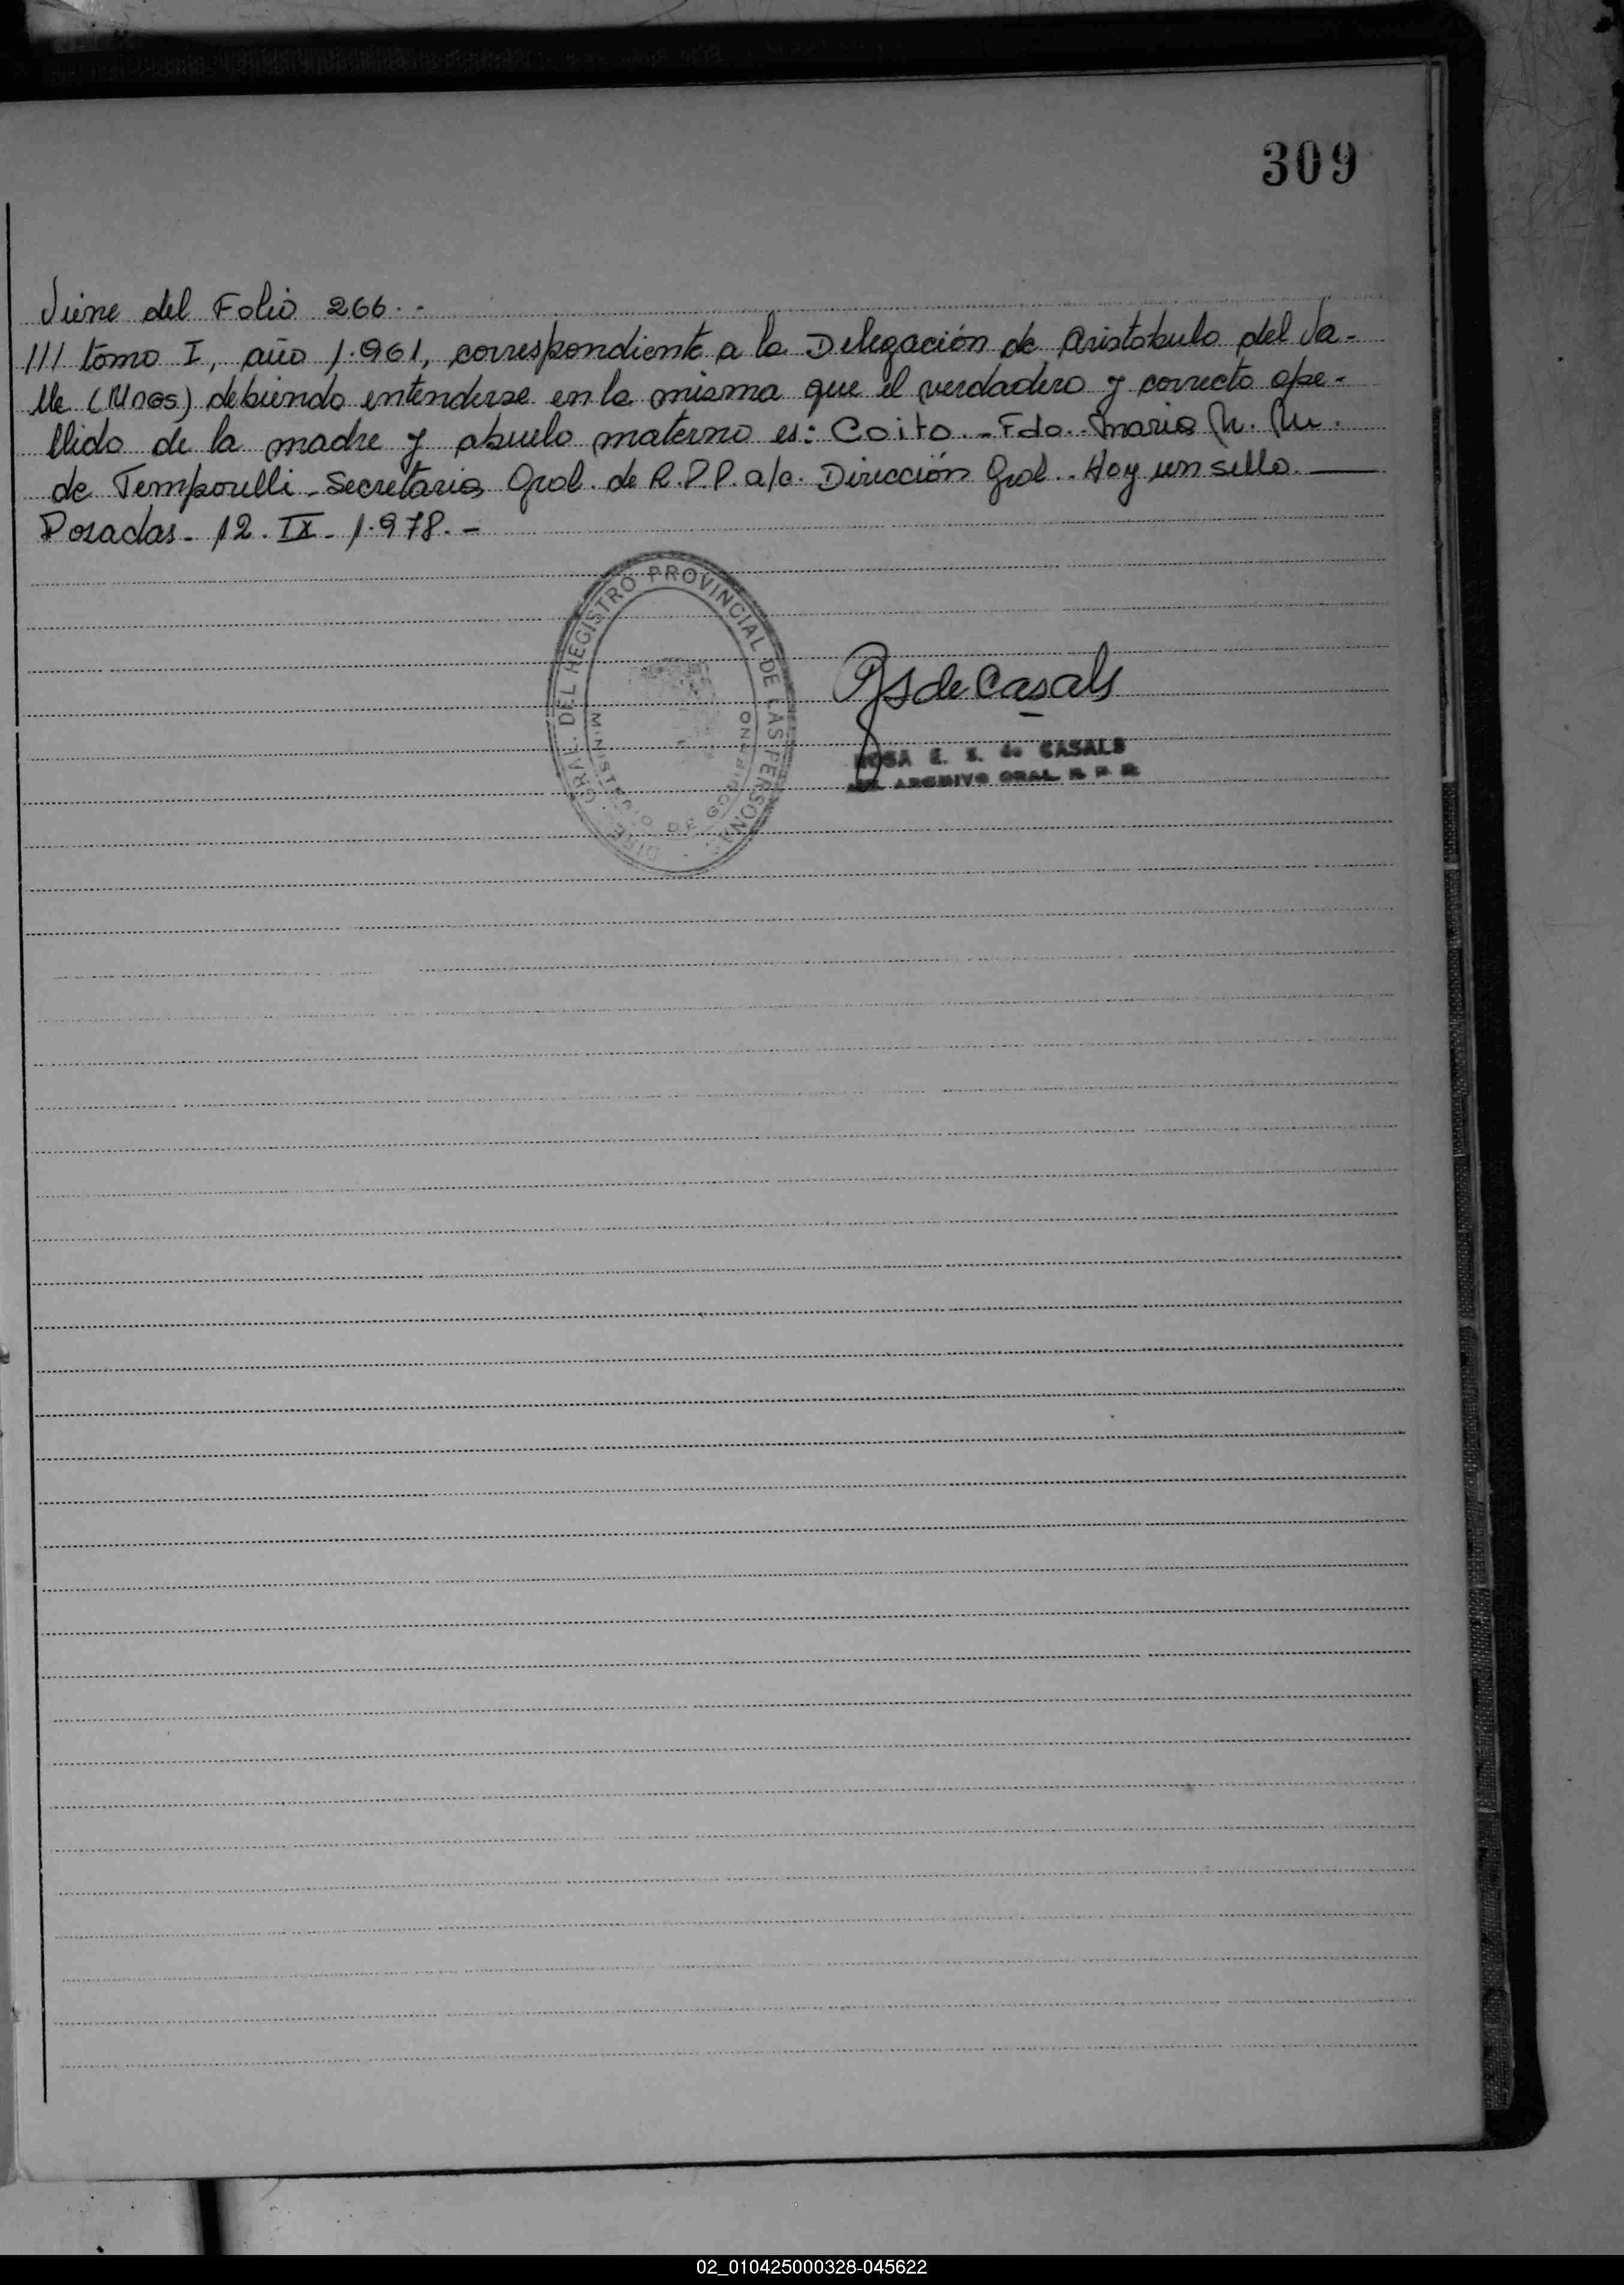 309
Viene del Folio 266.-
/// tomo I, año 1.961, correspondiente a la Delegación de Aristobulo del Va-
lle (Mnes) debiendo entenderse en la misma que el verdadero y correcto ape-
llido de la madre y abuelo materno es: Coito.-Fdo. Maria
de Temporelli-Secretaria Gral. de R.P.P. a/c. Dirección Gral.. Hay un sello.
Posadas- 12. IX- 1.978.-
DEL REGISTRO PROVINCIAL DE LAS PERSONAS
MINISTERIO DE GOBIERNO
de Casals
ROSA E. S. de CASALS
ARCHIVO GRAL. R. P. P.
02_010425000328-045622